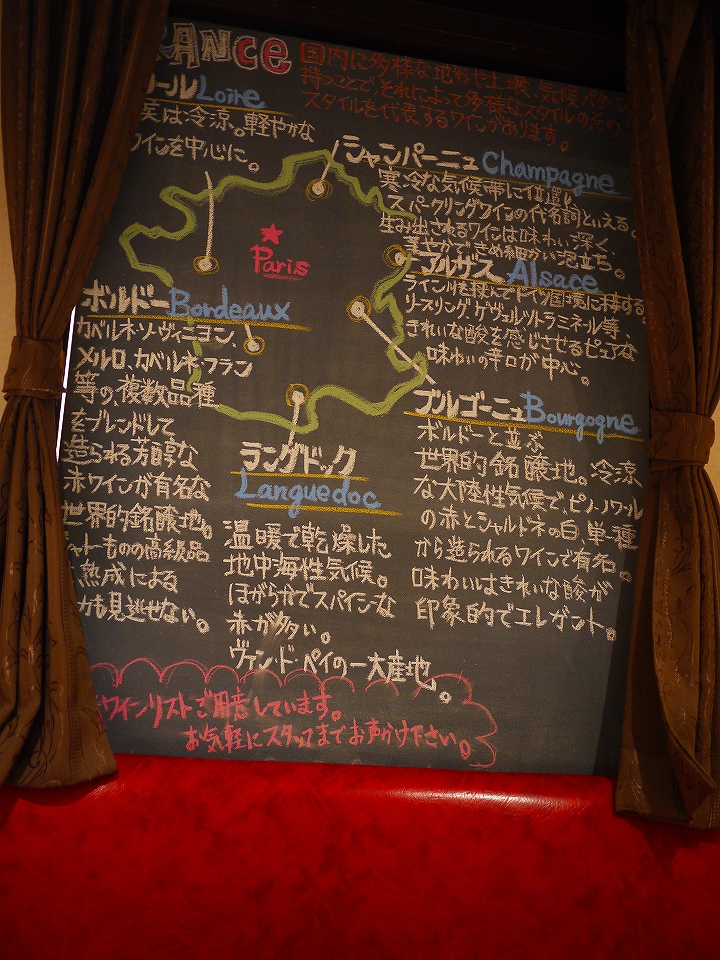 RANCE
国内に多様な地形や土壌、気候パターン
持つことで、それによって多様なスタイルのその
スタイルを代表するワインがあります。
ール Loire
実は冷涼。軽やかな
ワインを中心に。
シャンパーニュ Champagne
寒冷な気候帯に位置し
スパークリングワインの代名詞といえる。
生み出されるワインは味わい深く
きめ細かい泡立ち。
アルザス Alsace
ライン川を挟んでドイツ国境に接する
リースリング、ゲヴェルツトラミネール等、
きれいな酸を感じさせるピュアな
味わいの辛口が中心。
Paris
ボルドー Bordeaux
カベルネ・ソーヴィニヨン、
メルロ、カベルネ・フラン
等の、複数品種
をブレンドして
造られる芳醇な
赤ワインが有名な
世界的銘醸地。
シャトーものの高級品
熟成による
力も見逃せない。
ブルゴーニュ Bourgogne
ボルドーと並ぶ
世界的銘醸地。冷涼
な大陸性気候で、ピノ・ノワール
の赤とシャルドネの白、単種
から造られるワインで有名。
味わいはきれいな酸が
印象的でエレガント。
ラングドック
Languedoc
温暖で乾燥した
地中海性気候。
ほがらかでスパイシーな
赤が多い。
ヴァン・ド・ペイの一大産地。
ワインリストご用意しています。
お気軽にスタッフまでお声かけ下さい。